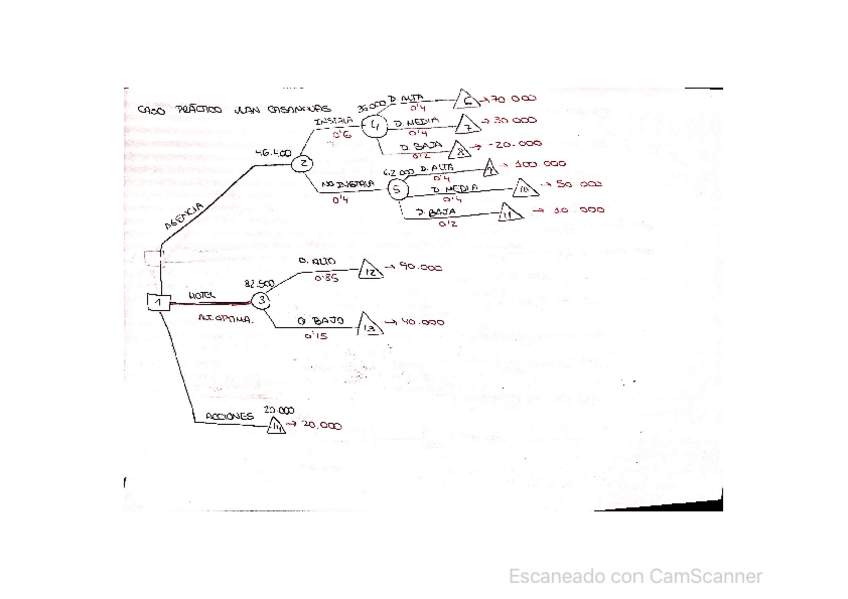 CASO PRÁCTICO JUAN CASANUEVAS
AGENCIA
46.400
2
INSTALA
0'6
36.000
4
D. ALTA
0'4
6 → 70 000
D. MEDIA
0'4
7 → 30 000
D. BAJA
0'2
8 → -20.000
NO INSTALA
0'4
62.000
5
D. ALTA
0'4
→ 100.000
D. MEDIA
0'4
10 → 50 000
D. BAJA
0'2
11 → 10.000
1
HOTEL
ALT. OPTIMA.
82.500
3
D. ALTO
0'85
12 → 90.000
D BAJO
0'15
13 → 40.000
ACCIONES
20.000
14 → 20.000
Escaneado con CamScanner